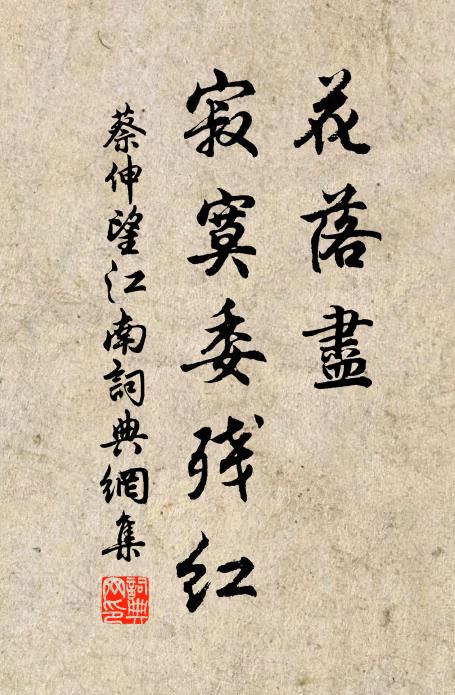 花落盡
寂寞委残红
蔡伸望江南詞典網集
詞典
网印